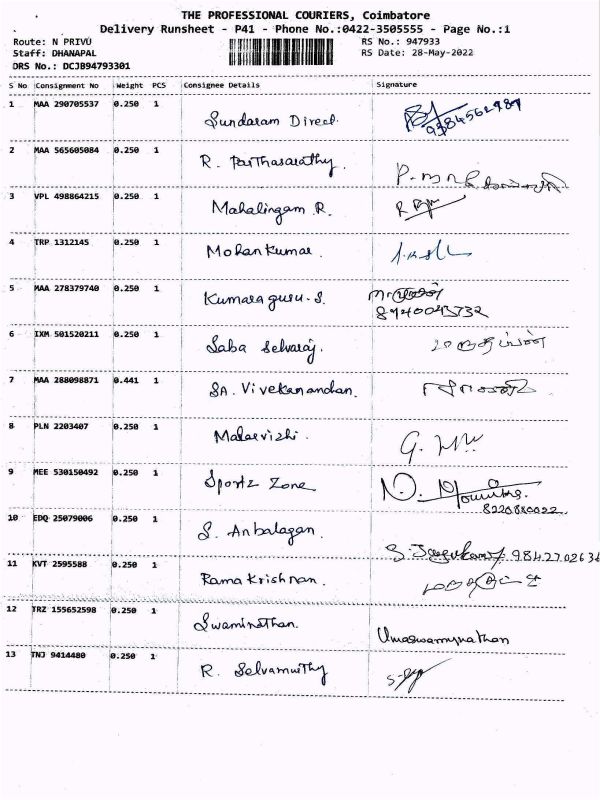 THE PROFESSIONAL COURIERS, Coimbatore
Delivery Runsheet - P41 - Phone No.:0422-3505555 - Page No.:1
Route: N PRIVU RS No.: 947933
Staff: DHANAPAL RS Date: 28-May-2022
DRS No.: DCJB94793301
S No Consignment No Weight PCS Consignee Details Signature
1 MAA 290705537 0.250 1 Sundaram Direct. 9384562989
2 MAA 565605084 0.250 1 R. Parthasarathy.
3 VPL 498864215 0.250 1 Mahalingam R.
4 TRP 1312145 0.250 1 Mohan Kumar.
5 MAA 278379740 0.250 1 Kumaraguru. S.
8940043732
6 IXM 501520211 0.250 1 Saba Selvaraj.
7 MAA 288098871 0.441 1 SA. Vivekanandan.
8 PLN 2203407 0.250 1 Malarvizhi.
9 MEE 530150492 0.250 1 Sportz Zone
8220880022
10 EDQ 25079006 0.250 1 S. Anbalagan.
11 KVT 2595588 0.250 1 Rama Krishnan.
12 TRZ 155652598 0.250 1 Swaminathan. Umaswamynathan
13 TNJ 9414480 0.250 1 R. Selvamurthy